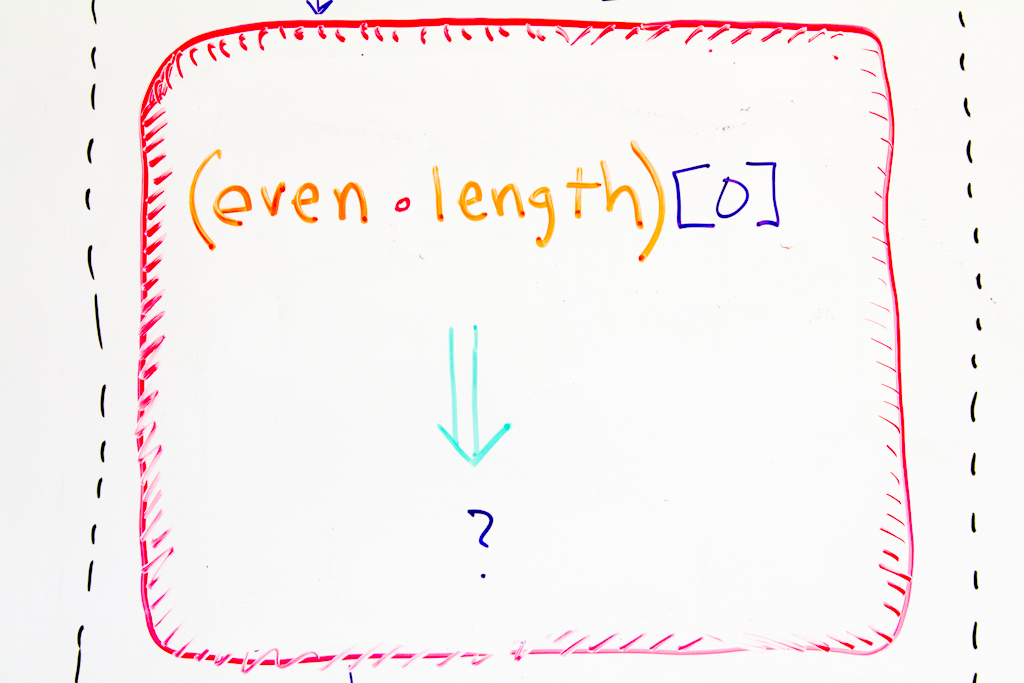 (even . length) [0]
?